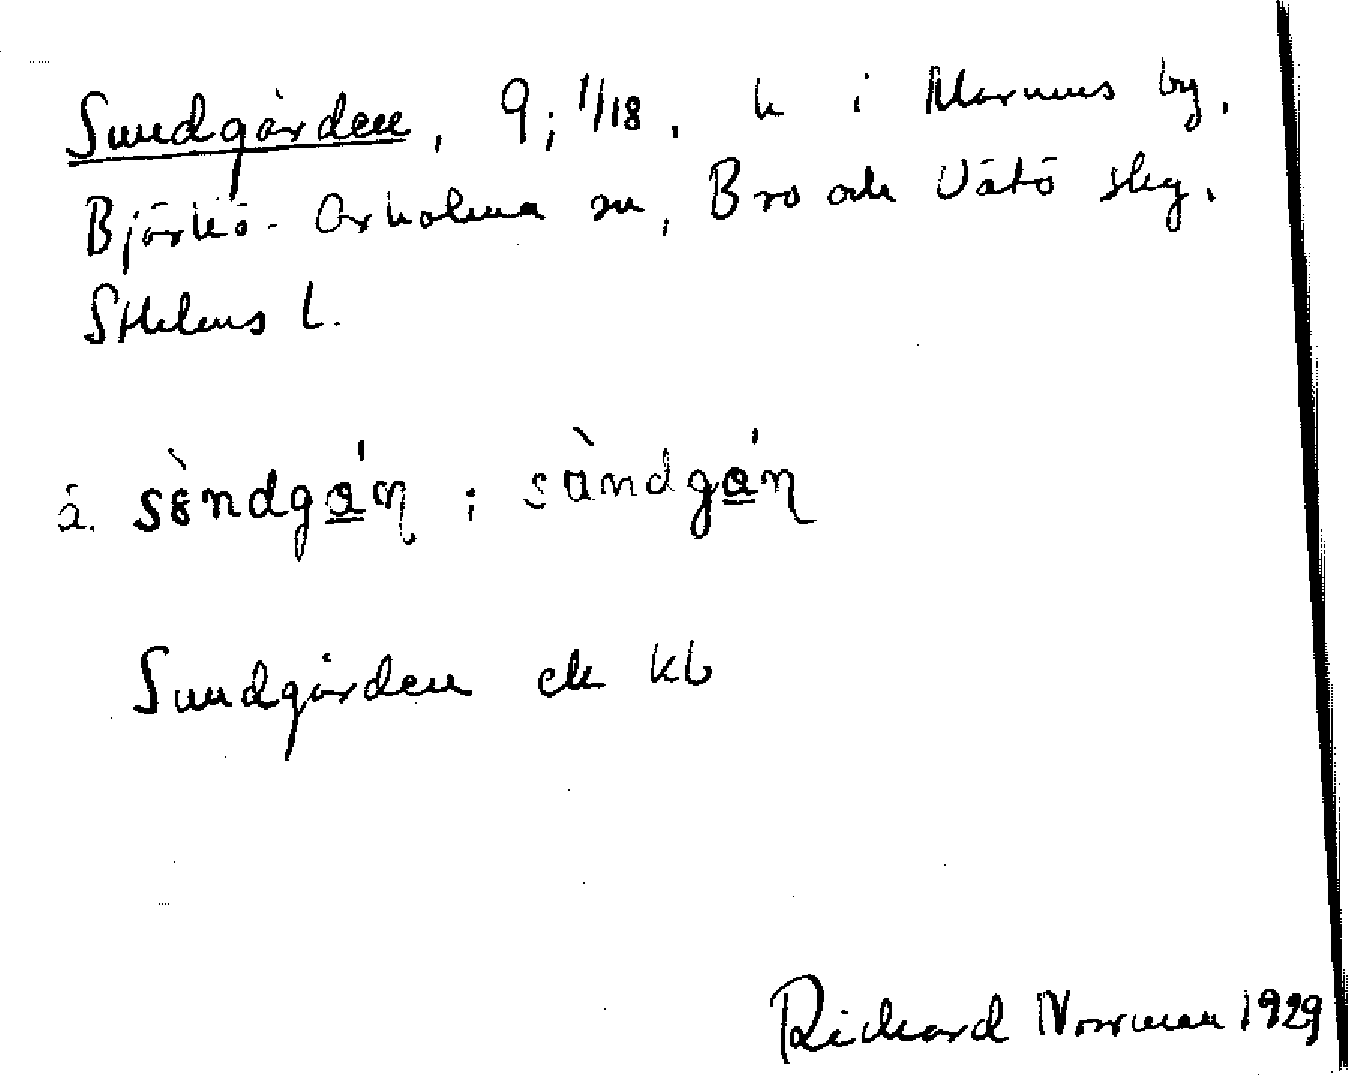 Sundgården, 9; 1/18. h i Marums by,
Björkö-Arholma sn, Bro och Vätö skg.
Sthlms l.
a. sɵ̀ndgɑ̲́ɳ ; sùndgɑ̲́ɳ
Sundgården ek kb
Richard Norrman 1929